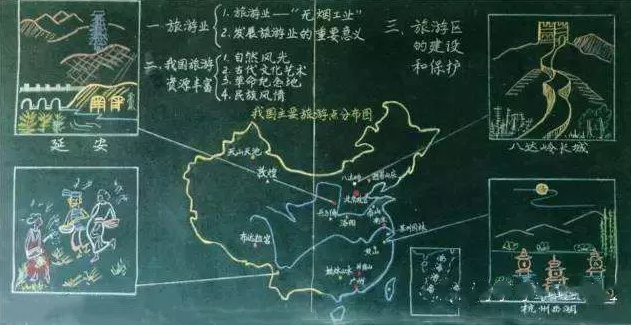 一 旅游业
1. 旅游业——“无烟工业”
2. 发展旅游业的重要意义
二. 我国旅游
资源丰富
1. 自然风光
2. 古代文化艺术
3. 革命纪念地
4. 民族风情
三. 旅游区
的建设
和保护
延安
八达岭长城
我国主要旅游点分布图
天山天池
敦煌
八达岭
北京故宫
兵马俑
洛阳
苏州园林
布达拉宫
黄山
桂林山水
广州
杭州西湖